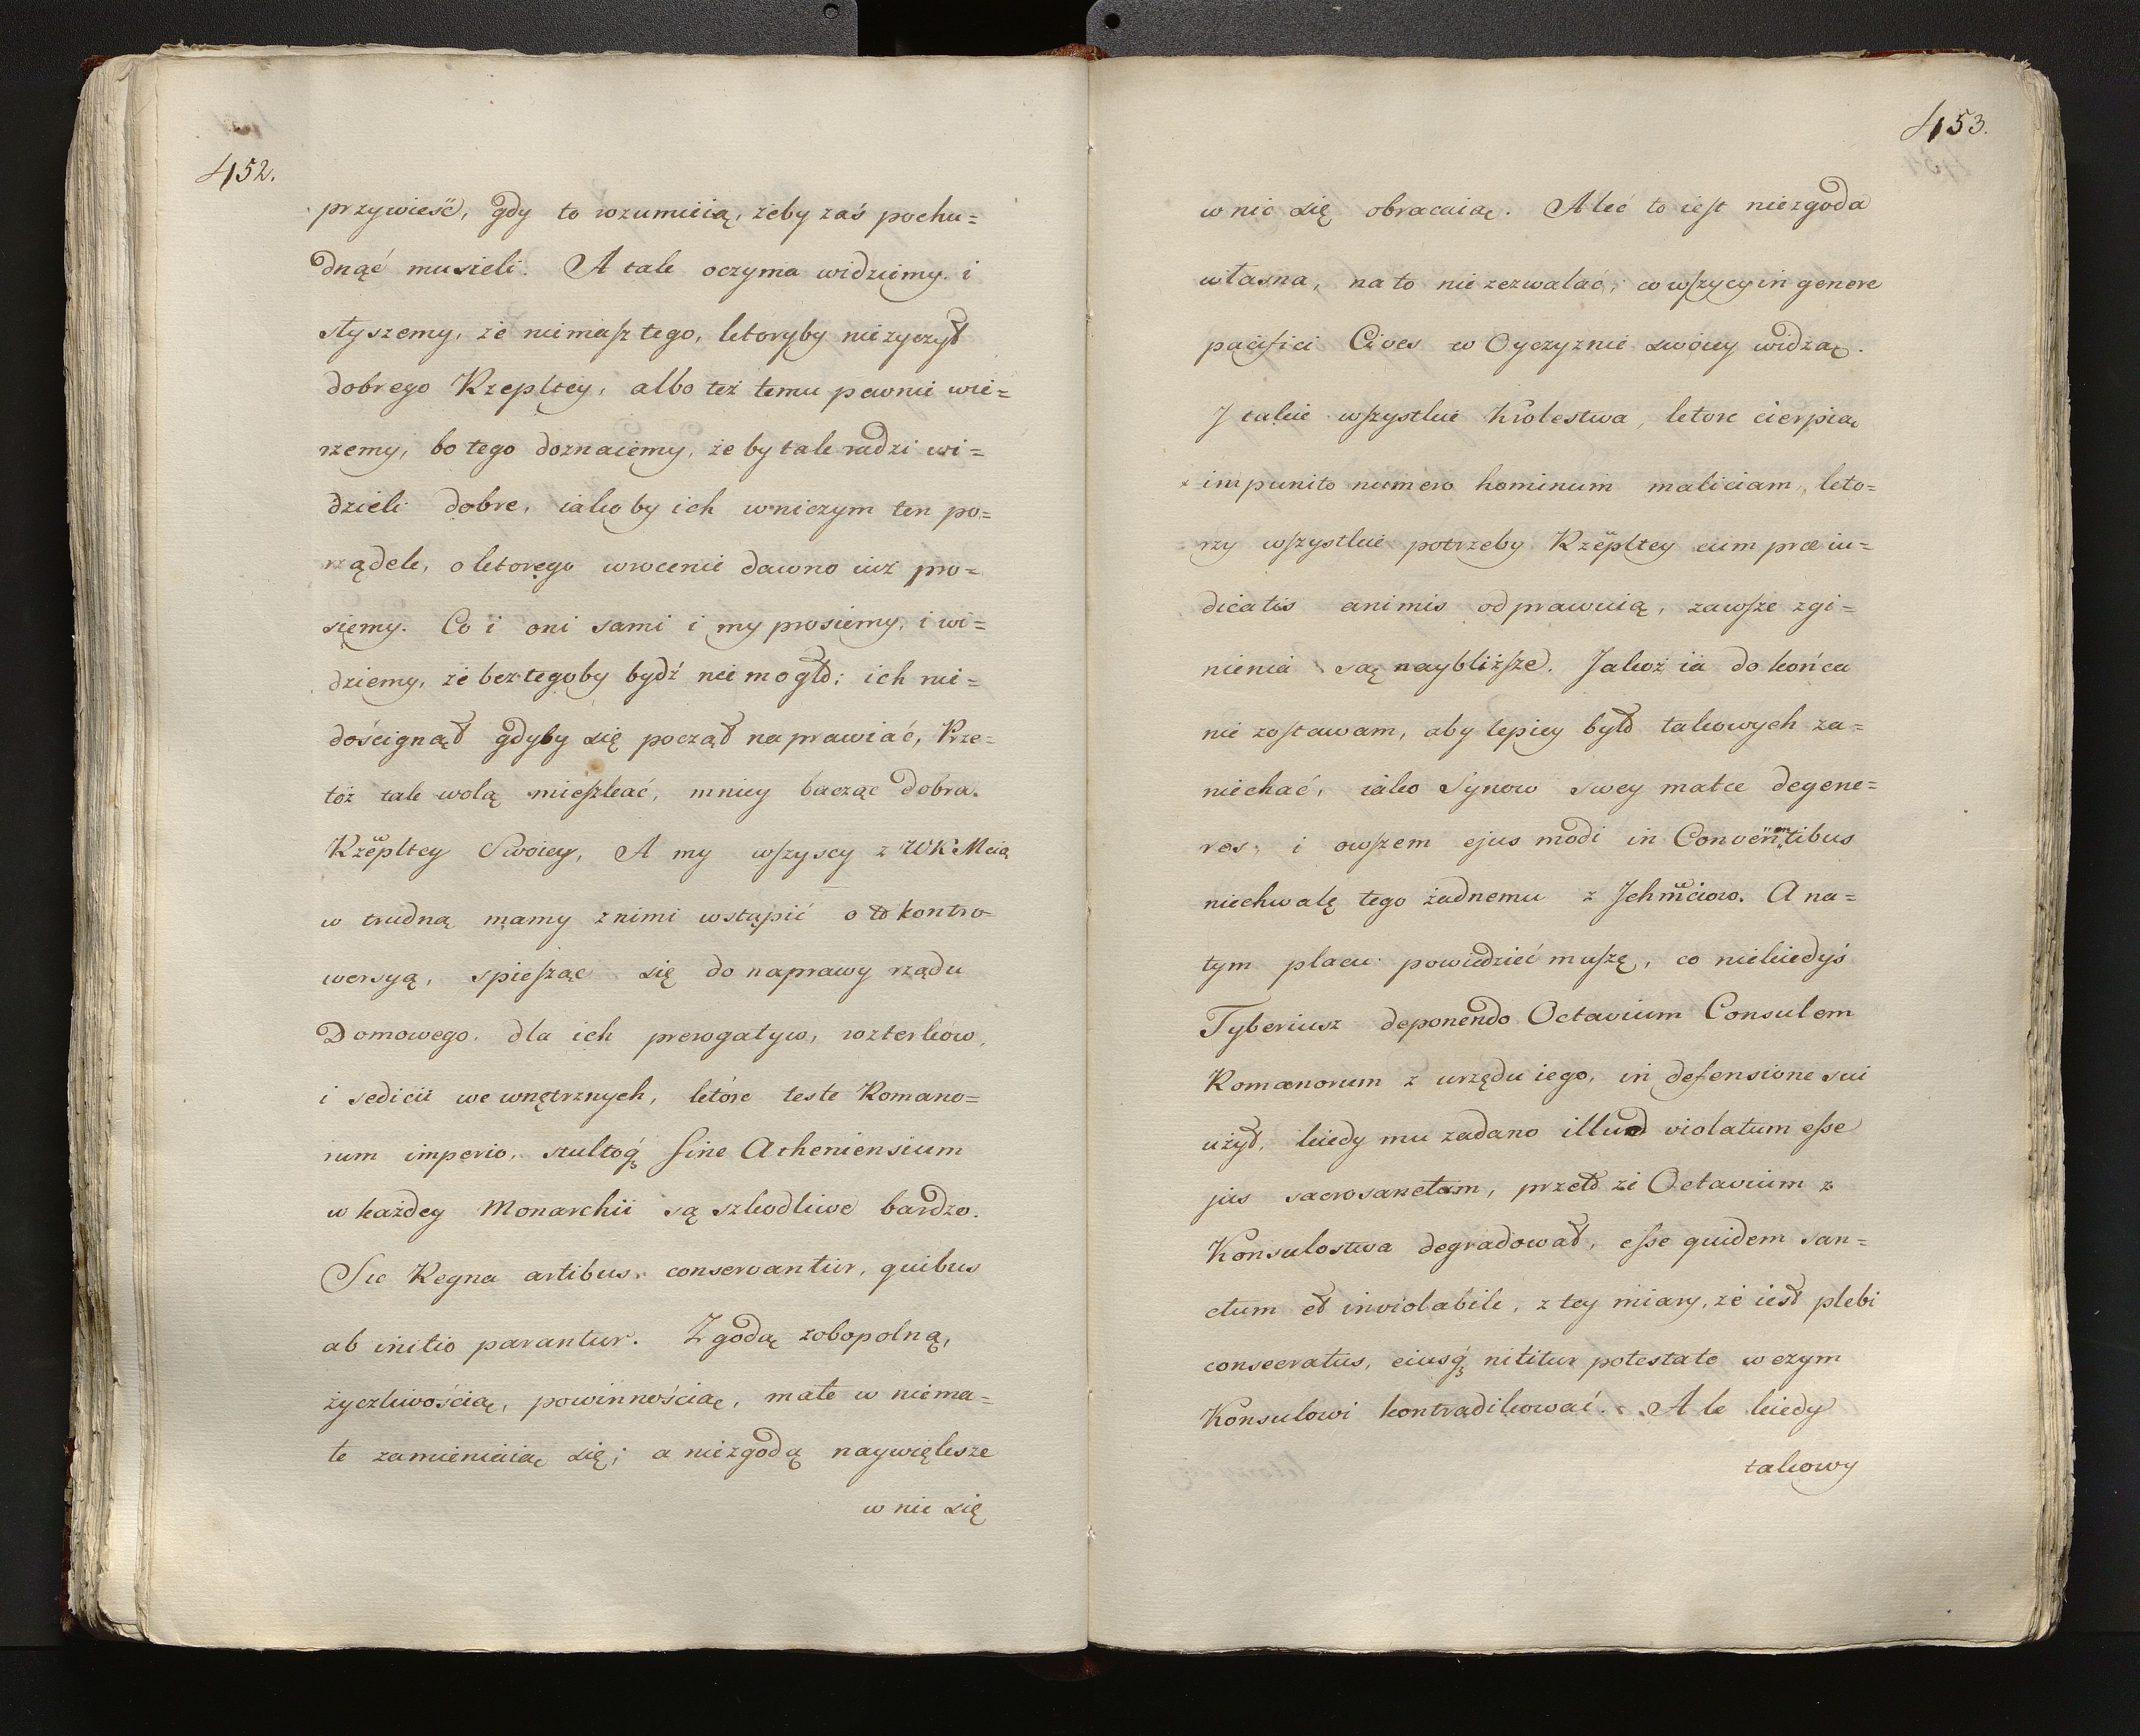 452.
przywieść, gdy to rozumieią, żeby zaś pochu=
dnąć musieli. A tak oczyma widziemy i
słyszemy, że niemasz tego, ktoryby nieżyczył
dobrego Rzepltey, albo też temu pewnie wie=
rzemy, bo tego doznaiemy, że by tak radzi wi=
dzieli dobre, iakoby ich wniczym ten po=
rządek, o ktorego wrocenie dawno iuż pro=
siemy. Co i oni sami i my prosiemy, i wi=
dziemy, że beztegoby bydź nie mogło; ich nie=
doścignął gdyby się począł naprawiać, Prze=
toż tak wolą mieszkać, mniey bacząc dobra
Rzepltey Swoiey, A my wszyscy z WKMcią
w trudną mamy znimi wstąpić o to kontro=
wersyą, spiesząc się do naprawy rządu
Domowego, dla ich prerogatyw, rozterkow,
i sedicii wewnętrznych, które teste Romano=
rum imperio, multoq3 sine Atheniensium
w każdey Monarchii są szkodliwe bardzo.
Sic Regna artibus conservantur, quibus
ab initio parantur. Zgodą zobopolną,
życzliwością, powinnością, małe w niema=
łe zamieniaią się; a niezgodą naywiększe
w nic się
453.
wnic się obracaią. Aleć to iest niezgoda
własna, na to nie zezwalać, co wszycy in genere
pacifici Cives w Oyczyznie swoiey widzą.
J takie wszystkie Krolestwa, ktore cierpią
impunito numero hominum maliciam, kto=
rzy wszystkie potrzeby Rzepltey cum præiu=
dicatis animis odprawuią, zawsze zgi=
nienia są naybliższe. Jakoż ia do końca
nie zostawam, aby lepiey było takowych za=
niechać, iako Synow swey matce degene=
res, i owszem ejus modi in Conventibus
niechwalę tego żadnemu z Jchmciow. A na=
tym placu powiedzieć muszę, co niekiedyś
Tyberiusz deponendo Octavium Consulem
Romanorum z urzędu iego, in defensione sui
użył, kiedy mu zadano illud violatum esse
jus sacrosanctum, przeto że Octavium z
Konsulostwa degradował, esse quidem san=
ctum et inviolabile, z tey miary, że iest plebi
consecratus, eiusq3 nititur potestate wczym
Konsulowi kontradikować. Ale kiedy
takowy